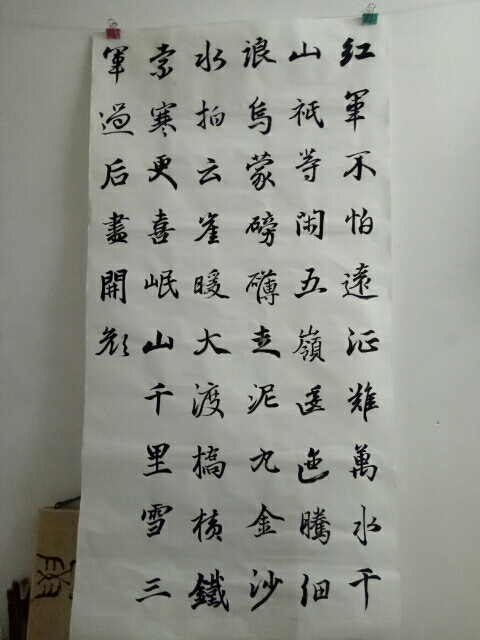 紅軍不怕遠征難萬水千
山祇等閑五嶺逶迤騰细
浪烏蒙磅礴走泥丸金沙
水拍云崖暖大渡橋横鐵
索寒更喜岷山千里雪三
軍過后盡開颜